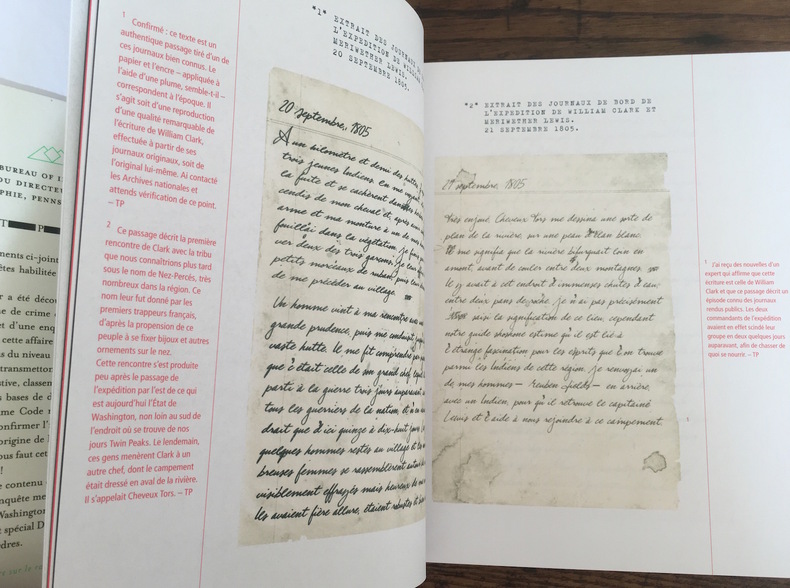 BUREAU OF
DU DIRECTEU
PHIE, PENNS
T P
ments ci-joint
êtes habilitée
r a été déco
ne de crime
et d'une enq
cette affaire
us du niveau
transmetto
stive, classem
s bases de d
me Code
onfirmer l'
origine de
ous faut cet
!
e contenu
nquête me
Washington
t spécial D
rdres.
1 Confirmé : ce texte est un
authentique passage tiré d'un de
ces journaux bien connus. Le
papier et l'encre – appliquée à
l'aide d'une plume, semble-t-il –
correspondent à l'époque. Il
s'agit soit d'une reproduction
d'une qualité remarquable de
l'écriture de William Clark,
effectuée à partir de ses
journaux originaux, soit de
l'original lui-même. Ai contacté
les Archives nationales et
attends vérification de ce point.
– TP
2 Ce passage décrit la première
rencontre de Clark avec la tribu
que nous connaîtrons plus tard
sous le nom de Nez-Percés, très
nombreux dans la région. Ce
nom leur fut donné par les
premiers trappeurs français,
d'après la propension de ce
peuple à se fixer bijoux et autres
ornements sur le nez.
Cette rencontre s'est produite
peu après le passage de
l'expédition par l'est de ce qui
est aujourd'hui l'État de
Washington, non loin au sud de
l'endroit où se trouve de nos
jours Twin Peaks. Le lendemain,
ces gens menèrent Clark à un
autre chef, dont le campement
était dressé en aval de la rivière.
Il s'appelait Cheveux Tors. – TP
*1* EXTRAIT DES JOURNAUX DE
L'EXPEDITION DE
MERIWETHER LEWIS.
20 SEPTEMBRE 1805.
20 septembre, 1805
A un kilomètre et demi des
trois jeunes Indiens. En me
la fuite et se cachèrent dans
cendis de mon cheval et, après
arme et ma monture à un de mes
fouillai dans la végétation. Je
ver deux des trois garçons. Je leur
petits morceaux de ruban, puis
de me précéder au village.
Un homme vint à ma rencontre avec
grande prudence, puis me
vaste hutte. Il me fit comprendre
que c'était celle de son grand chef
parti à la guerre trois jours
tous les guerriers de la nation, et
drait que d'ici quinze à dix-huit
quelques hommes restés au village et
breuses femmes se rassemblèrent autour
visiblement effrayés mais heureux de
Ils avaient fière allure, étaient robustes et
*2* EXTRAIT DES JOURNAUX DE BORD DE
L'EXPEDITION DE WILLIAM CLARK ET
MERIWETHER LEWIS.
21 SEPTEMBRE 1805.
21 septembre, 1805
Très enjoué, Cheveux Tors me dessina une sorte de
plan de la rivière, sur une peau d'élan blanc.
Il me signifia que la rivière bifurquait loin en
amont, avant de couler entre deux montagnes.
Il y avait à cet endroit d'immenses chutes d'eau,
entre deux pans de roche. Je n'ai pas précisément
saisi la signification de ce lieu, cependant
notre guide shoshone estime qu'il est lié à
l'étrange fascination pour les esprits que l'on trouve
parmi les Indiens de cette région. Je renvoyai un
de mes hommes – Reuben Fields – en arrière,
avec un Indien, pour qu'il retrouve le capitaine
Lewis et l'aide à nous rejoindre à ce campement.
1 J'ai reçu des nouvelles d'un
expert qui affirme que cette
écriture est celle de William
Clark et que ce passage décrit un
épisode connu des journaux
rendus publics. Les deux
commandants de l'expédition
avaient en effet scindé leur
groupe en deux quelques jours
auparavant, afin de chasser de
quoi se nourrir. – TP